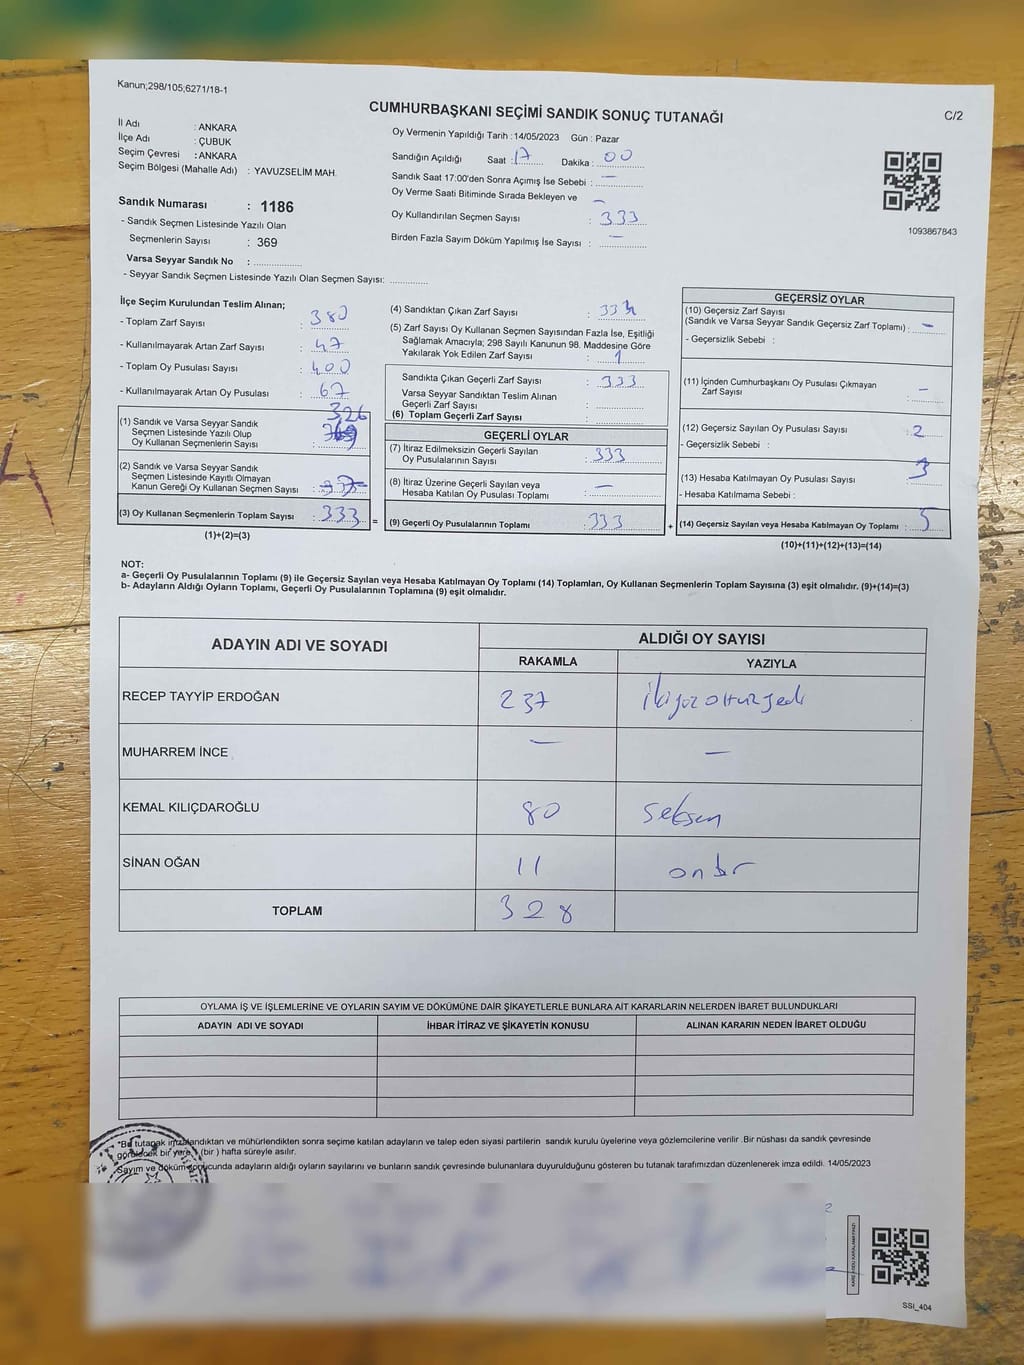 Kanun;298/105;6271/18-1
CUMHURBAŞKANI SEÇİMİ SANDIK SONUÇ TUTANAĞI
C/2
İl Adı : ANKARA
İlçe Adı : ÇUBUK
Seçim Çevresi : ANKARA
Seçim Bölgesi (Mahalle Adı) : YAVUZSELİM MAH.
Sandık Numarası : 1186
- Sandık Seçmen Listesinde Yazılı Olan
Seçmenlerin Sayısı : 369
Varsa Seyyar Sandık No : ..............
- Seyyar Sandık Seçmen Listesinde Yazılı Olan Seçmen Sayısı: ..............
Oy Vermenin Yapıldığı Tarih : 14/05/2023 Gün : Pazar
Sandığın Açıldığı Saat : 17 Dakika : 00
Sandık Saat 17:00'den Sonra Açımış İse Sebebi : —
Oy Verme Saati Bitiminde Sırada Bekleyen ve —
Oy Kullandırılan Seçmen Sayısı : 333
Birden Fazla Sayım Döküm Yapılmış İse Sayısı : —
1093867843
İlçe Seçim Kurulundan Teslim Alınan;
- Toplam Zarf Sayısı : 380
- Kullanılmayarak Artan Zarf Sayısı : 47
- Toplam Oy Pusulası Sayısı : 400
- Kullanılmayarak Artan Oy Pusulası : 67
326
(1) Sandık ve Varsa Seyyar Sandık
Seçmen Listesinde Yazılı Olup
Oy Kullanan Seçmenlerin Sayısı :
(2) Sandık ve Varsa Seyyar Sandık
Seçmen Listesinde Kayıtlı Olmayan
Kanun Gereği Oy Kullanan Seçmen Sayısı :
(3) Oy Kullanan Seçmenlerin Toplam Sayısı : 333 =
(1)+(2)=(3)
(4) Sandıktan Çıkan Zarf Sayısı : 334
(5) Zarf Sayısı Oy Kullanan Seçmen Sayısından Fazla İse, Eşitliği
Sağlamak Amacıyla; 298 Sayılı Kanunun 98. Maddesine Göre
Yakılarak Yok Edilen Zarf Sayısı : 1
Sandıkta Çıkan Geçerli Zarf Sayısı : 333
Varsa Seyyar Sandıktan Teslim Alınan
Geçerli Zarf Sayısı : ..............
(6) Toplam Geçerli Zarf Sayısı : ..............
GEÇERLİ OYLAR
(7) İtiraz Edilmeksizin Geçerli Sayılan
Oy Pusulalarının Sayısı : 333
(8) İtiraz Üzerine Geçerli Sayılan veya
Hesaba Katılan Oy Pusulası Toplamı : —
(9) Geçerli Oy Pusulalarının Toplamı : 333 +
GEÇERSİZ OYLAR
(10) Geçersiz Zarf Sayısı
(Sandık ve Varsa Seyyar Sandık Geçersiz Zarf Toplamı) : —
- Geçersizlik Sebebi :
(11) İçinden Cumhurbaşkanı Oy Pusulası Çıkmayan
Zarf Sayısı : —
(12) Geçersiz Sayılan Oy Pusulası Sayısı : 2
- Geçersizlik Sebebi :
(13) Hesaba Katılmayan Oy Pusulası Sayısı : 3
- Hesaba Katılmama Sebebi :
(14) Geçersiz Sayılan veya Hesaba Katılmayan Oy Toplamı : 5
(10)+(11)+(12)+(13)=(14)
NOT:
a- Geçerli Oy Pusulalarının Toplamı (9) ile Geçersiz Sayılan veya Hesaba Katılmayan Oy Toplamı (14) Toplamları, Oy Kullanan Seçmenlerin Toplam Sayısına (3) eşit olmalıdır. (9)+(14)=(3)
b- Adayların Aldığı Oyların Toplamı, Geçerli Oy Pusulalarının Toplamına (9) eşit olmalıdır.
ADAYIN ADI VE SOYADI ALDIĞI OY SAYISI
RAKAMLA YAZIYLA
RECEP TAYYİP ERDOĞAN 237 İkiyüzotuzyedi
MUHARREM İNCE — —
KEMAL KILIÇDAROĞLU 80 seksen
SİNAN OĞAN 11 onbir
TOPLAM 328
OYLAMA İŞ VE İŞLEMLERİNE VE OYLARIN SAYIM VE DÖKÜMÜNE DAİR ŞİKAYETLERLE BUNLARA AİT KARARLARIN NELERDEN İBARET BULUNDUKLARI
ADAYIN ADI VE SOYADI İHBAR İTİRAZ VE ŞİKAYETİN KONUSU ALINAN KARARIN NEDEN İBARET OLDUĞU
"Bu tutanak imzalandıktan ve mühürlendikten sonra seçime katılan adayların ve talep eden siyasi partilerin sandık kurulu üyelerine veya gözlemcilerine verilir .Bir nüshası da sandık çevresinde
görülecek bir yere, (bir ) hafta süreyle asılır.
Sayım ve döküm sonucunda adayların aldığı oyların sayılarını ve bunların sandık çevresinde bulunanlara duyurulduğunu gösteren bu tutanak tarafımızdan düzenlenerek imza edildi. 14/05/2023
SSI_404